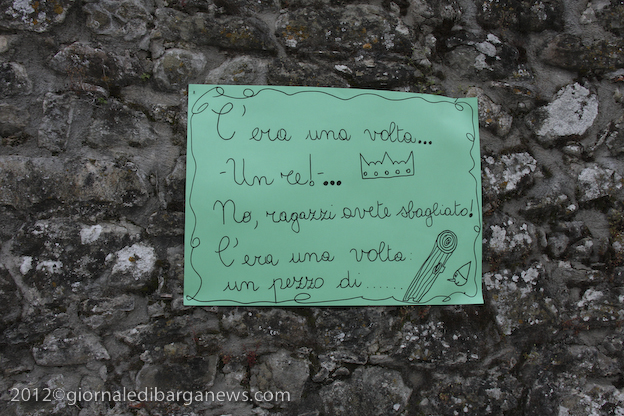 C'era una volta...
-Un re!-...
No, ragazzi avete sbagliato!
C'era una volta:
un pezzo di......
2012©giornaledibarganews.com